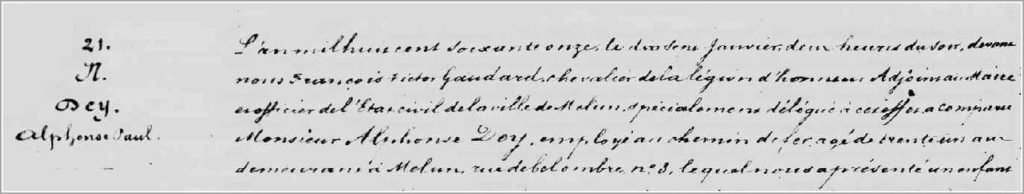 21.
N.
Dey.
Alphonse Paul.
L'an mil huit cent soixante onze, le dix sept Janvier, deux heures du soir, devant
nous François Victor Gaudard, chevalier de la légion d'honneur Adjoint au Maire
et officier de l'Etat civil de la ville de Melun, spécialement délégué à cet effet a comparu
Monsieur Alphonse Dey, employé au chemin de fer, agé de trente un ans
demeurant à Melun, rue de bel ombre, n° 3, lequel nous a présenté un enfant